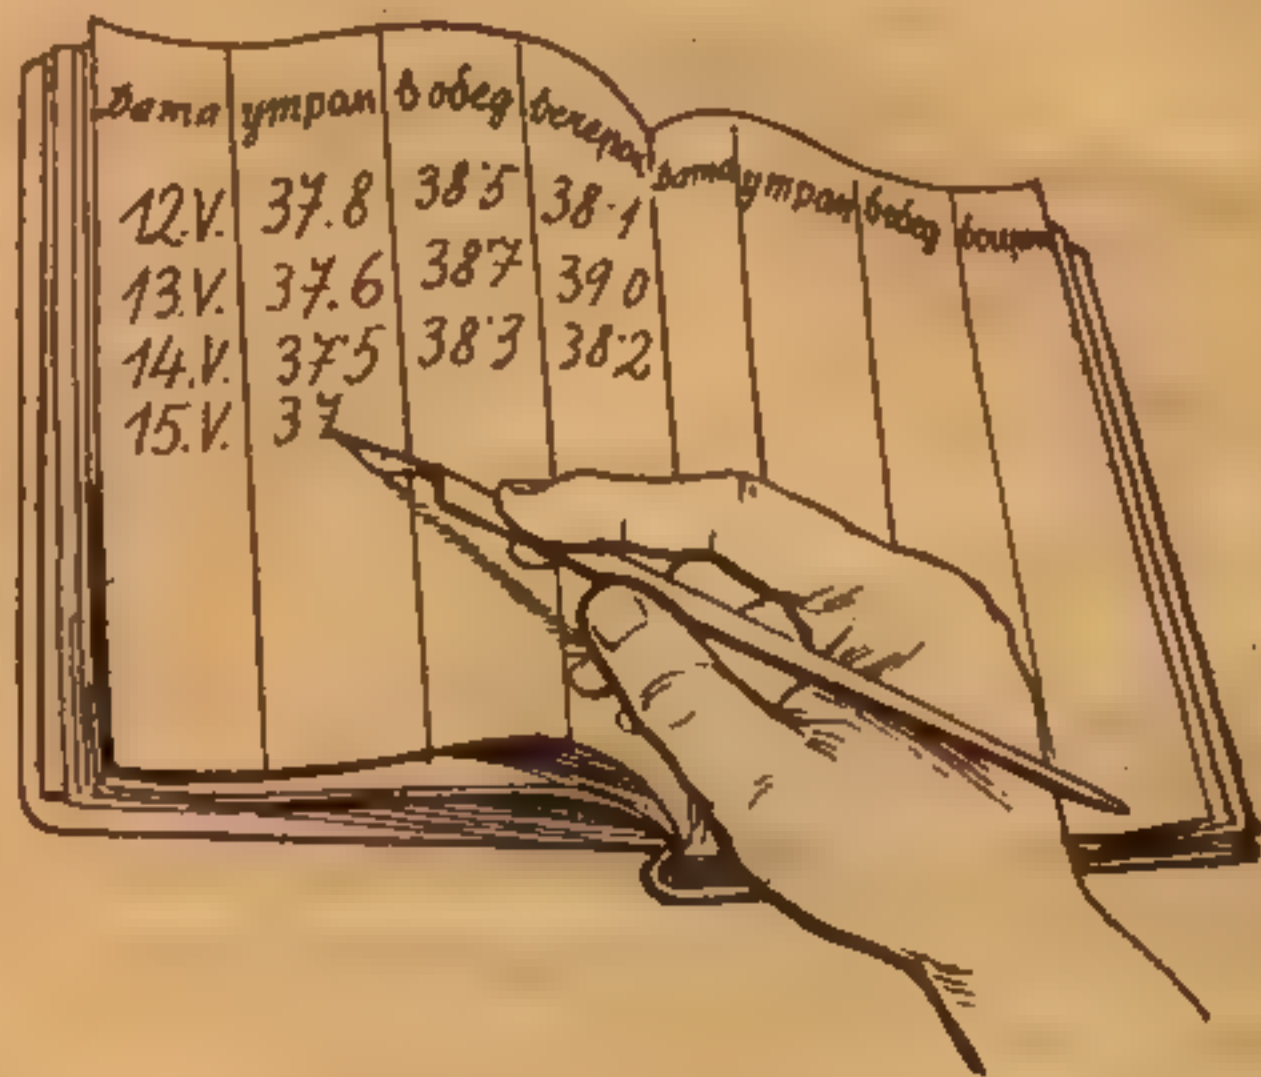 Дата утром в обед вечером
12.V. 37.8 38.5 38.1
13.V. 37.6 387 39 0
14.V. 37.5 38.3 38.2
15.V. 37
дата утром в обед